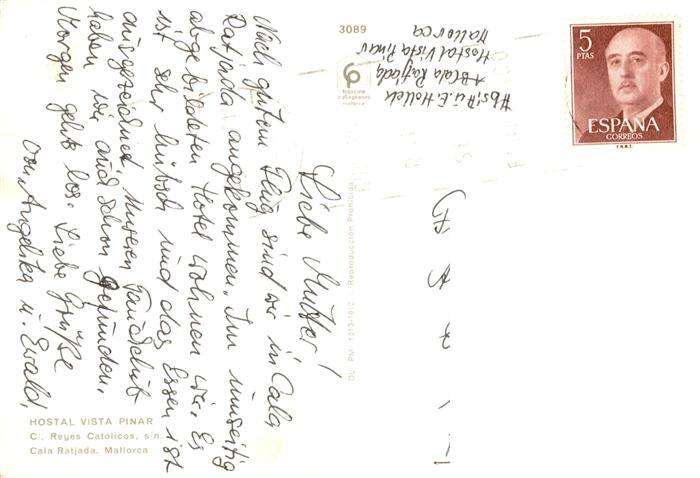 Liebe Mutter!
Nach gutem Flug sind wir in Cala
Ratjada angekommen. Im umseitig
abgebildeten Hotel wohnen wir. Es
ist sehr hübsch und das Essen ist
ausgezeichnet. Unseren Tauchclub
haben wir auch schon gefunden.
Morgen gehts los. Liebe Grüße
von Angelika u. Ewald.
HOSTAL VISTA PINAR
C/. Reyes Católicos, s/n.
Cala Ratjada. Mallorca
3089
Hostal Vista Pinar
Mallorca
DL. PM. 1013-1972
Reproducción Prohibida
5
PTAS
ESPAÑA
CORREOS
F.N.M.T.